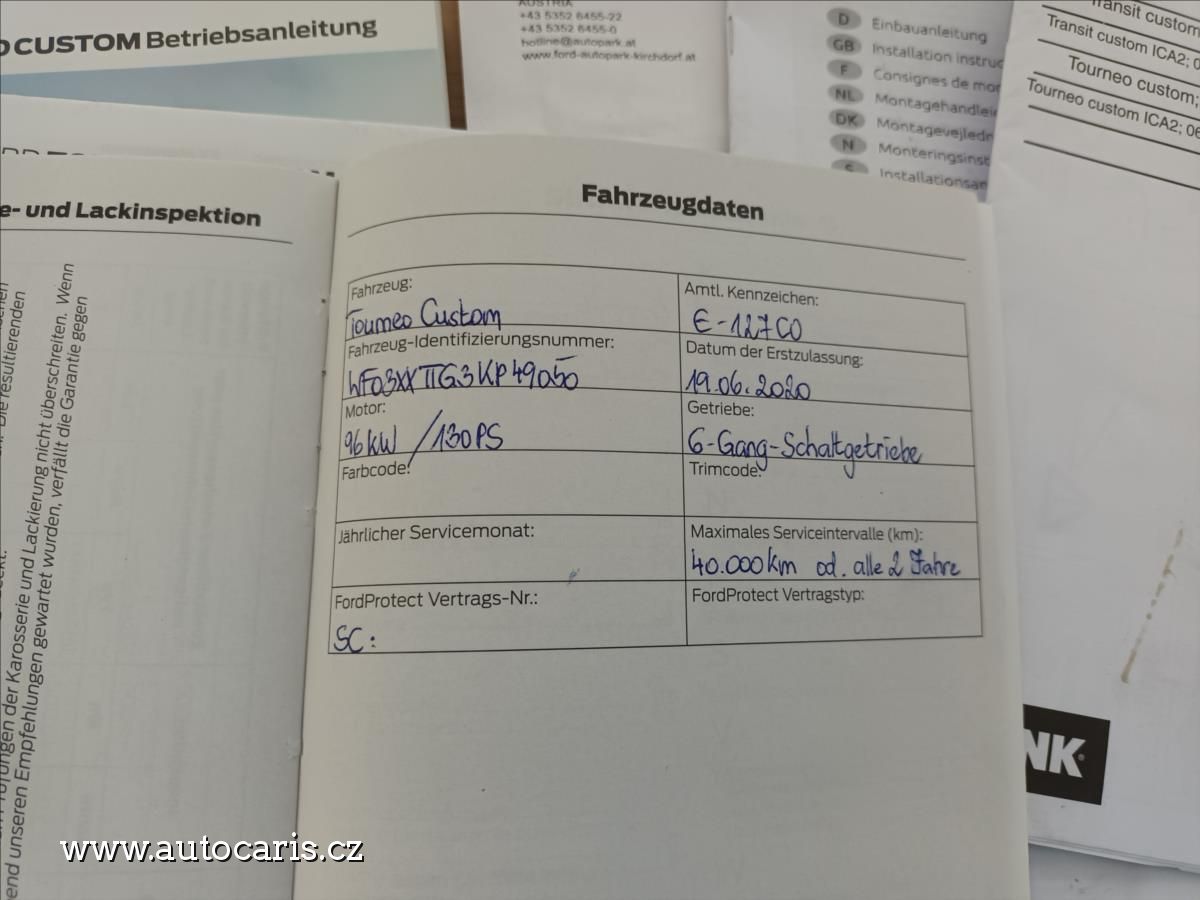 CUSTOM Betriebsanleitung
AUSTRIA
+43 5352 6455-22
+43 5352 6455-0
hotline@autopark.at
www.ford-autopark-kirchdorf.at
D Einbauanleitung
GB Installation instruc
F Consignes de mon
NL Montagehandleid
DK Montagevejledn
N Monteringsinst
S Installationsan
Transit custom
Transit custom ICA2; 0
Tourneo custom;
Tourneo custom ICA2; 06
e- und Lackinspektion
Die resultierenden
üfungen der Karosserie und Lackierung nicht überschreiten. Wenn
end unseren Empfehlungen gewartet wurden, verfällt die Garantie gegen
Fahrzeugdaten
Fahrzeug:
Tourneo Custom
Amtl. Kennzeichen:
E-127CO
Fahrzeug-Identifizierungsnummer:
WF03XXTTG3KP49050
Datum der Erstzulassung:
19.06.2020
Motor:
96kW /130PS
Getriebe:
6-Gang-Schaltgetriebe
Farbcode:
Trimcode:
Jährlicher Servicemonat:
Maximales Serviceintervalle (km):
40.000km od. alle 2 Jahre
FordProtect Vertrags-Nr.:
SC:
FordProtect Vertragstyp:
NK
www.autocaris.cz